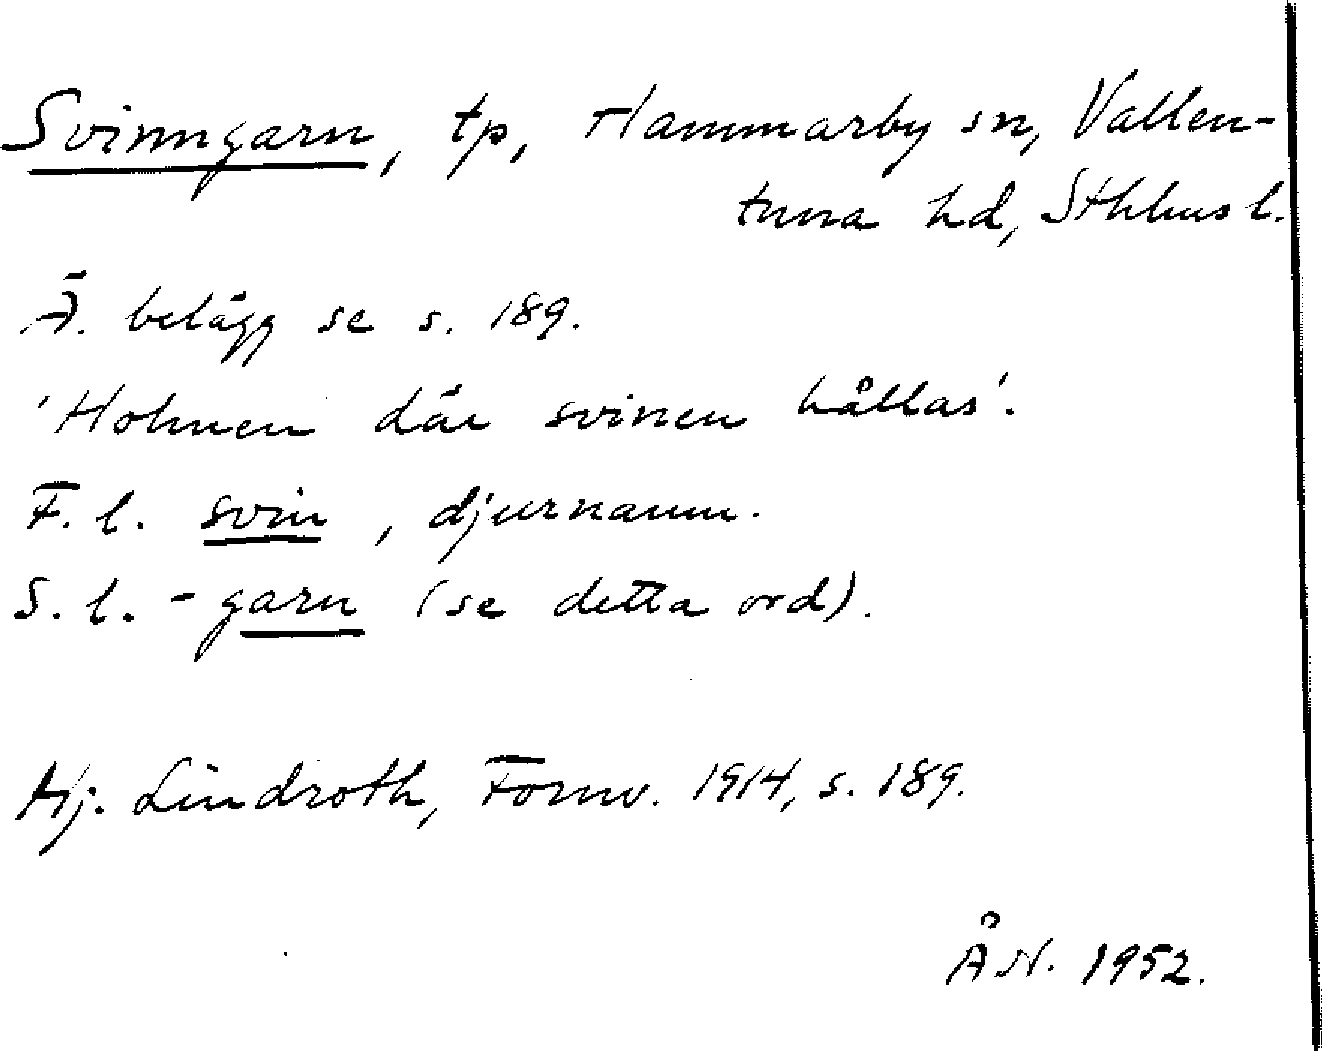 Svinngarn, tp, Hammarby sn, Vallen-
tuna hd, Sthlms l.
Ä. belägg se s. 189.
'Holmen där svinen hållas'.
F. l. svin, djurnamn.
S. l. -garn (se detta ord).
Hj. Lindroth, Fornv. 1914, s. 189.
ÅN. 1952.